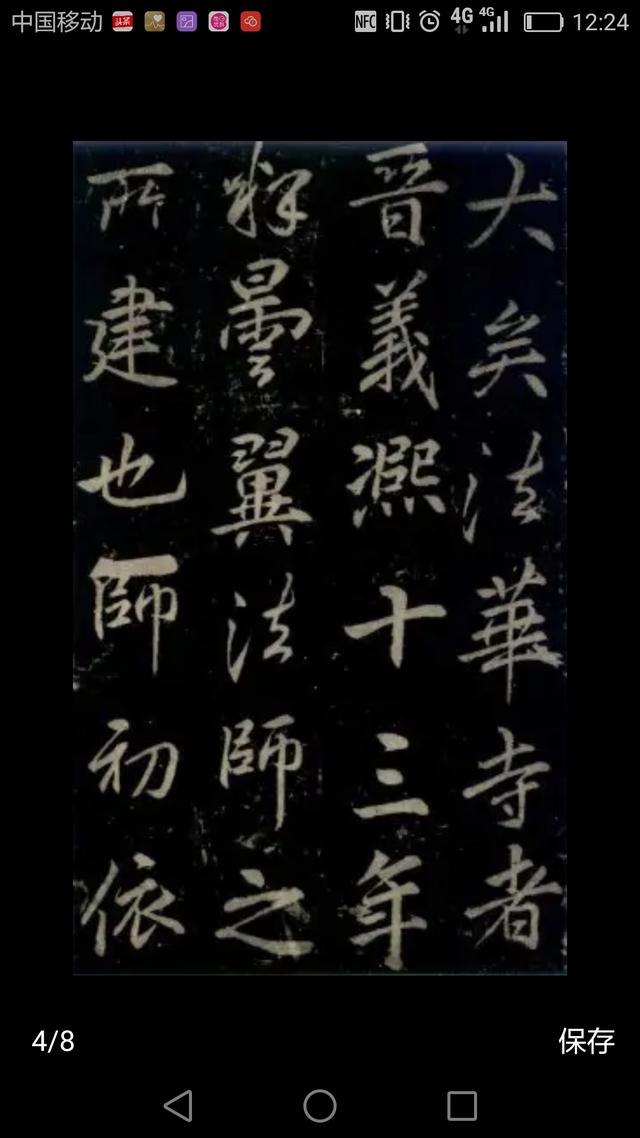 中国移动 头条 NFC 4G 4G 12:24
大矣法華寺者
晉義熈十三年
釋曇翼法師之
所建也師初依
4/8 保存